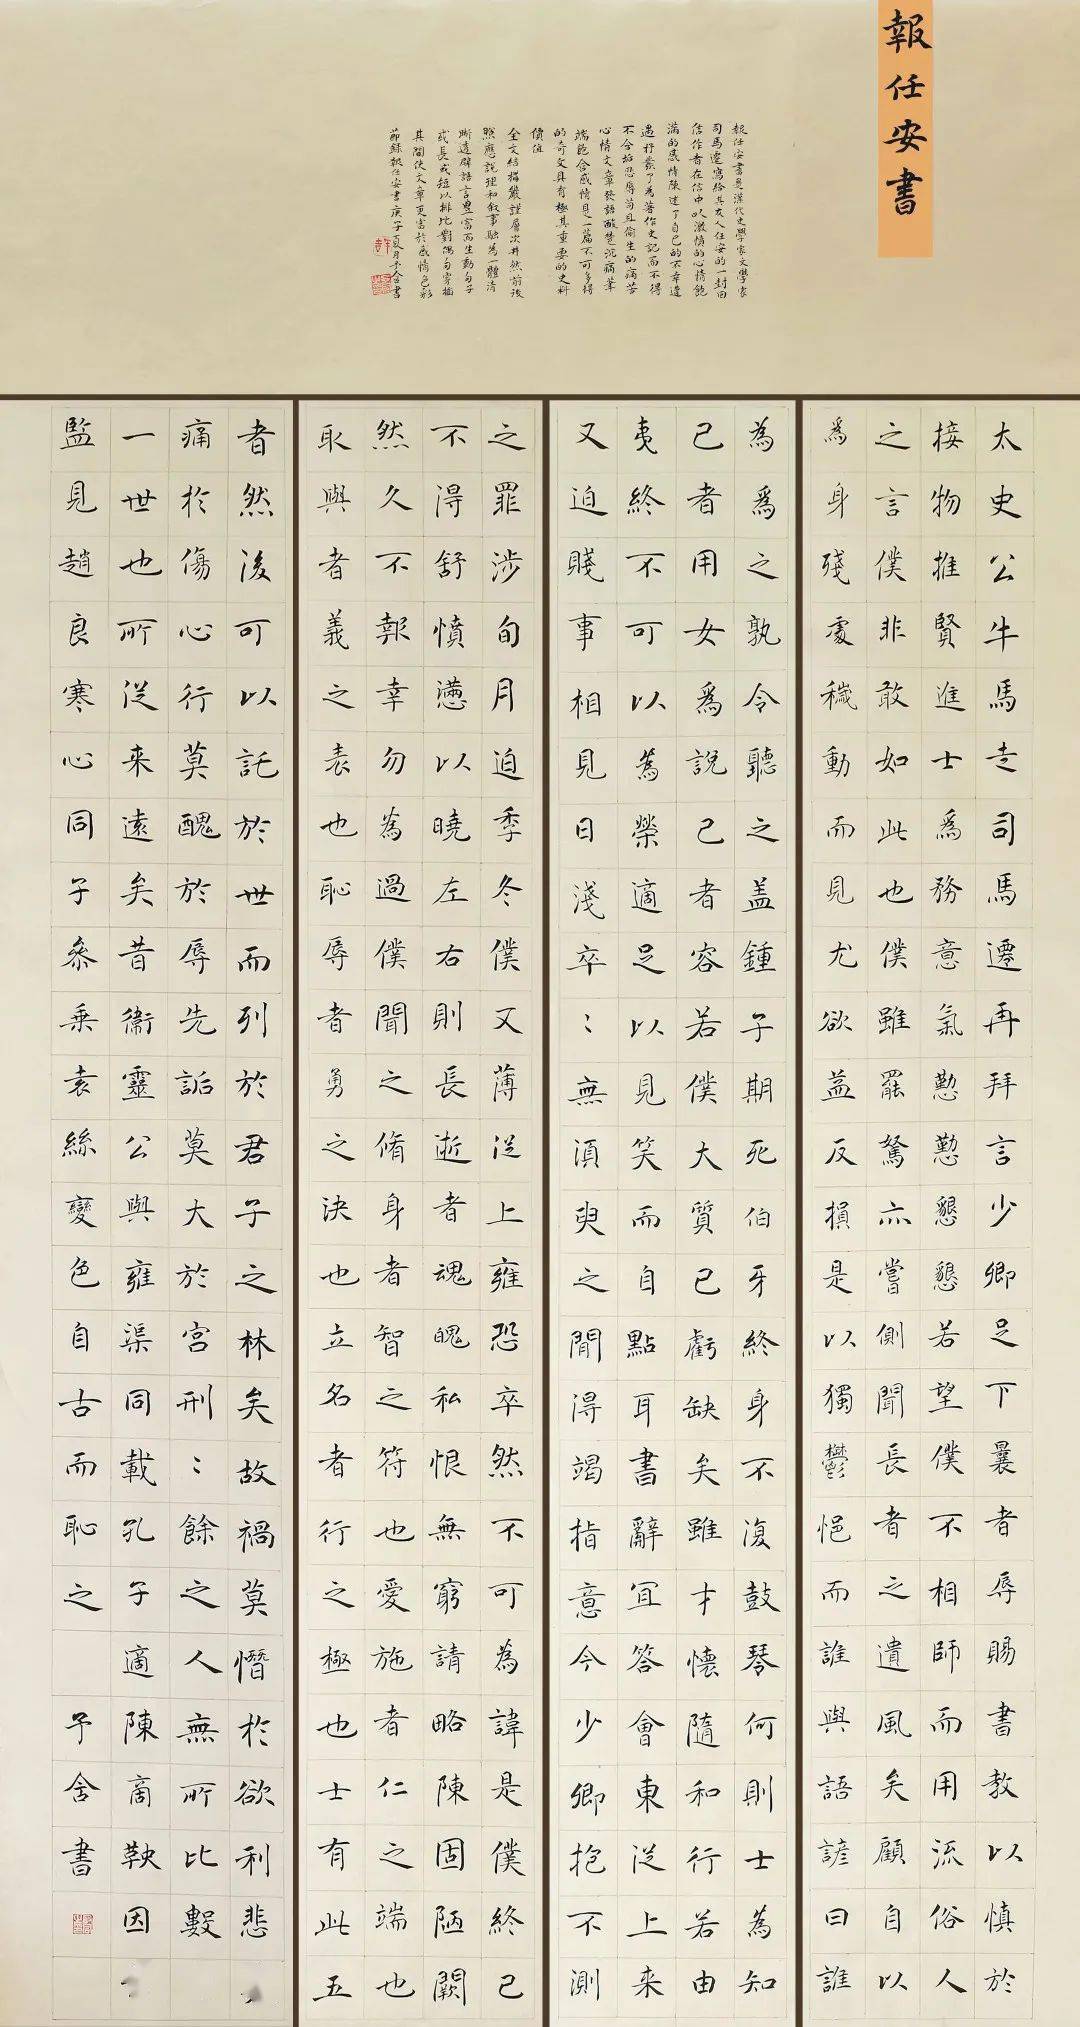 報任安書
報任安書是漢代史學家文學家
司馬遷寫給其友人任安的一封回
信作者在信中以激憤的心情飽
滿的感情陳述了自己的不幸遭
遇抒發了為著作史記而不得
不含垢忍辱苟且偷生的痛苦
心情文章發語酸楚沉痛筆
端飽含感情是一篇不可多得
的奇文具有極其重要的史料
價值
全文結構嚴謹層次井然前後
照應說理和敘事融為一體清
晰透闢語言豐富而生動句子
或長或短以排比對偶句穿插
其間使文章更富於感情色彩
節錄報任安書庚子夏月予舍書
太史公牛馬走司馬遷再拜言少卿足下曩者辱賜書教以慎於
接物推賢進士爲務意氣懃懃懇懇若望僕不相師而用流俗人
之言僕非敢如此也僕雖罷駑亦嘗側聞長者之遺風矣顧自以
爲身殘處穢動而見尤欲益反損是以獨鬱悒而誰與語諺曰誰
為爲之孰令聽之盖鍾子期死伯牙終身不復鼓琴何則士為知
己者用女爲說己者容若僕大質已虧缺矣雖才懷隨和行若由
夷終不可以為榮適足以見笑而自點耳書辭宜答會東從上来
又迫賤事相見日淺卒〻無須臾之間得竭指意今少卿抱不測
之罪涉旬月迫季冬僕又薄從上雍恐卒然不可為諱是僕終已
不得舒憤懣以曉左右則長逝者魂魄私恨無窮請略陳固陋闕
然久不報幸勿為過僕聞之脩身者智之符也愛施者仁之端也
取與者義之表也恥辱者勇之決也立名者行之極也士有此五
者然後可以託於世而列於君子之林矣故禍莫憯於欲利悲
痛於傷心行莫醜於辱先詬莫大於宮刑〻餘之人無所比數
一世也所從来遠矣昔衛靈公與雍渠同載孔子適陳商鞅因
監見趙良寒心同子參乘袁絲變色自古而恥之 予舍書